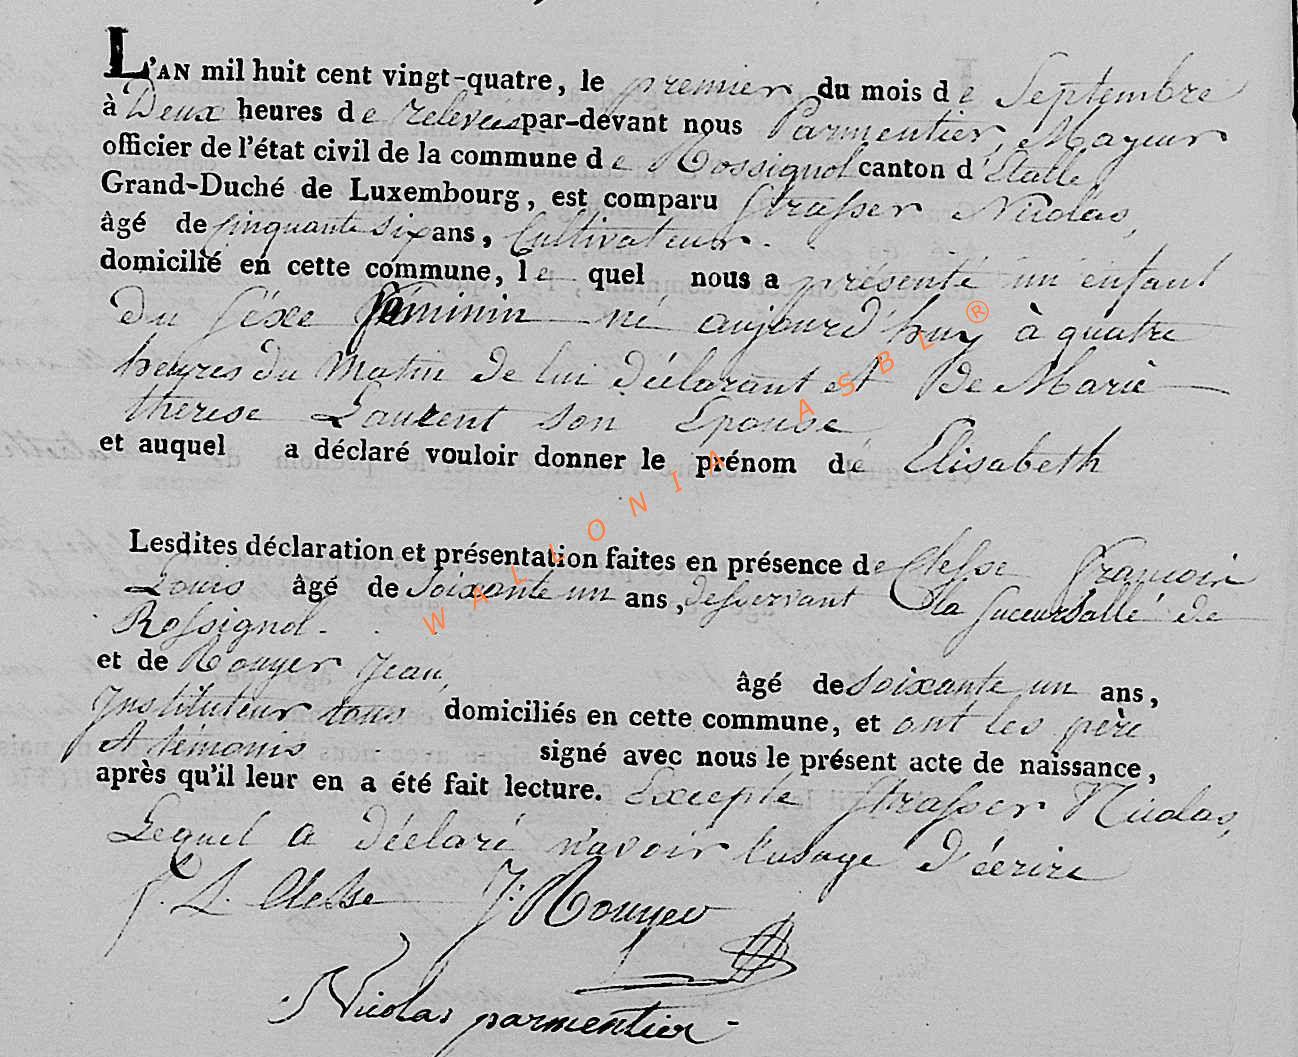 L'AN mil huit cent vingt-quatre, le premier du mois de Septembre
à Deux heures de relevées par-devant nous Parmentier, Mayeur
officier de l'état civil de la commune de Rossignol canton d'Etalle
Grand-Duché de Luxembourg, est comparu Strasser Nicolas,
âgé de cinquante six ans, Cultivateur.
domicilié en cette commune, le quel nous a présenté un enfant
du séxe féminin né aujourd'huy à quatre
heures du matin de lui déclarant et De Marie
thérése Laurent son Epouse
et auquel a déclaré vouloir donner le prénom dé Elisabeth
Lesdites déclaration et présentation faites en présence de Clesse François
Louis âgé de Soixante un ans, desservant la succursallé de
Rossignol.
et de Rouyer Jean, âgé de Soixante un ans,
Instituteur tous domiciliés en cette commune, et ont les père
et témonis signé avec nous le présent acte de naissance,
après qu'il leur en a été fait lecture. Excepte Strasser Nicolas,
Lequel a déclaré n'avoir l'usage d'écrire
f. L. Clesse J: Rouyer
Nicolas parmentier
WALLONIA ASBL ®